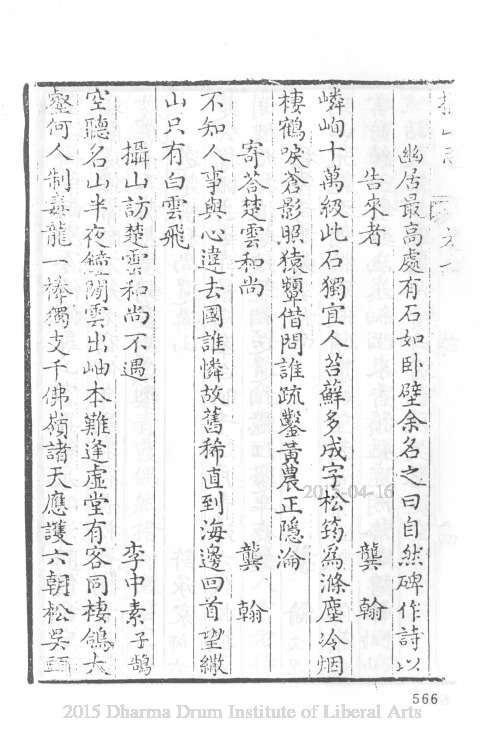 攝山志
幽居最高處有石如卧壁余名之曰自然碑作詩以
告來者 龔翰
嶙峋十萬級此石獨宜人苔蘚多成字松筠爲滌塵冷烟
棲鶴唳蒼影照猿顰借問誰疏鑿黃農正隱淪
寄答楚雲和尚 龔翰
不知人事與心違去國誰憐故舊稀直到海邊回首望繖
山只有白雲飛
攝山訪楚雲和尚不遇 李中素 子鵠
空聽名山半夜鐘閒雲出岫本難逢虛堂有客同棲鴿大
壑何人制毒龍一棒獨支千佛嶺諸天應護六朝松吳
2015-04-16
566
2015 Dharma Drum Institute of Liberal Arts